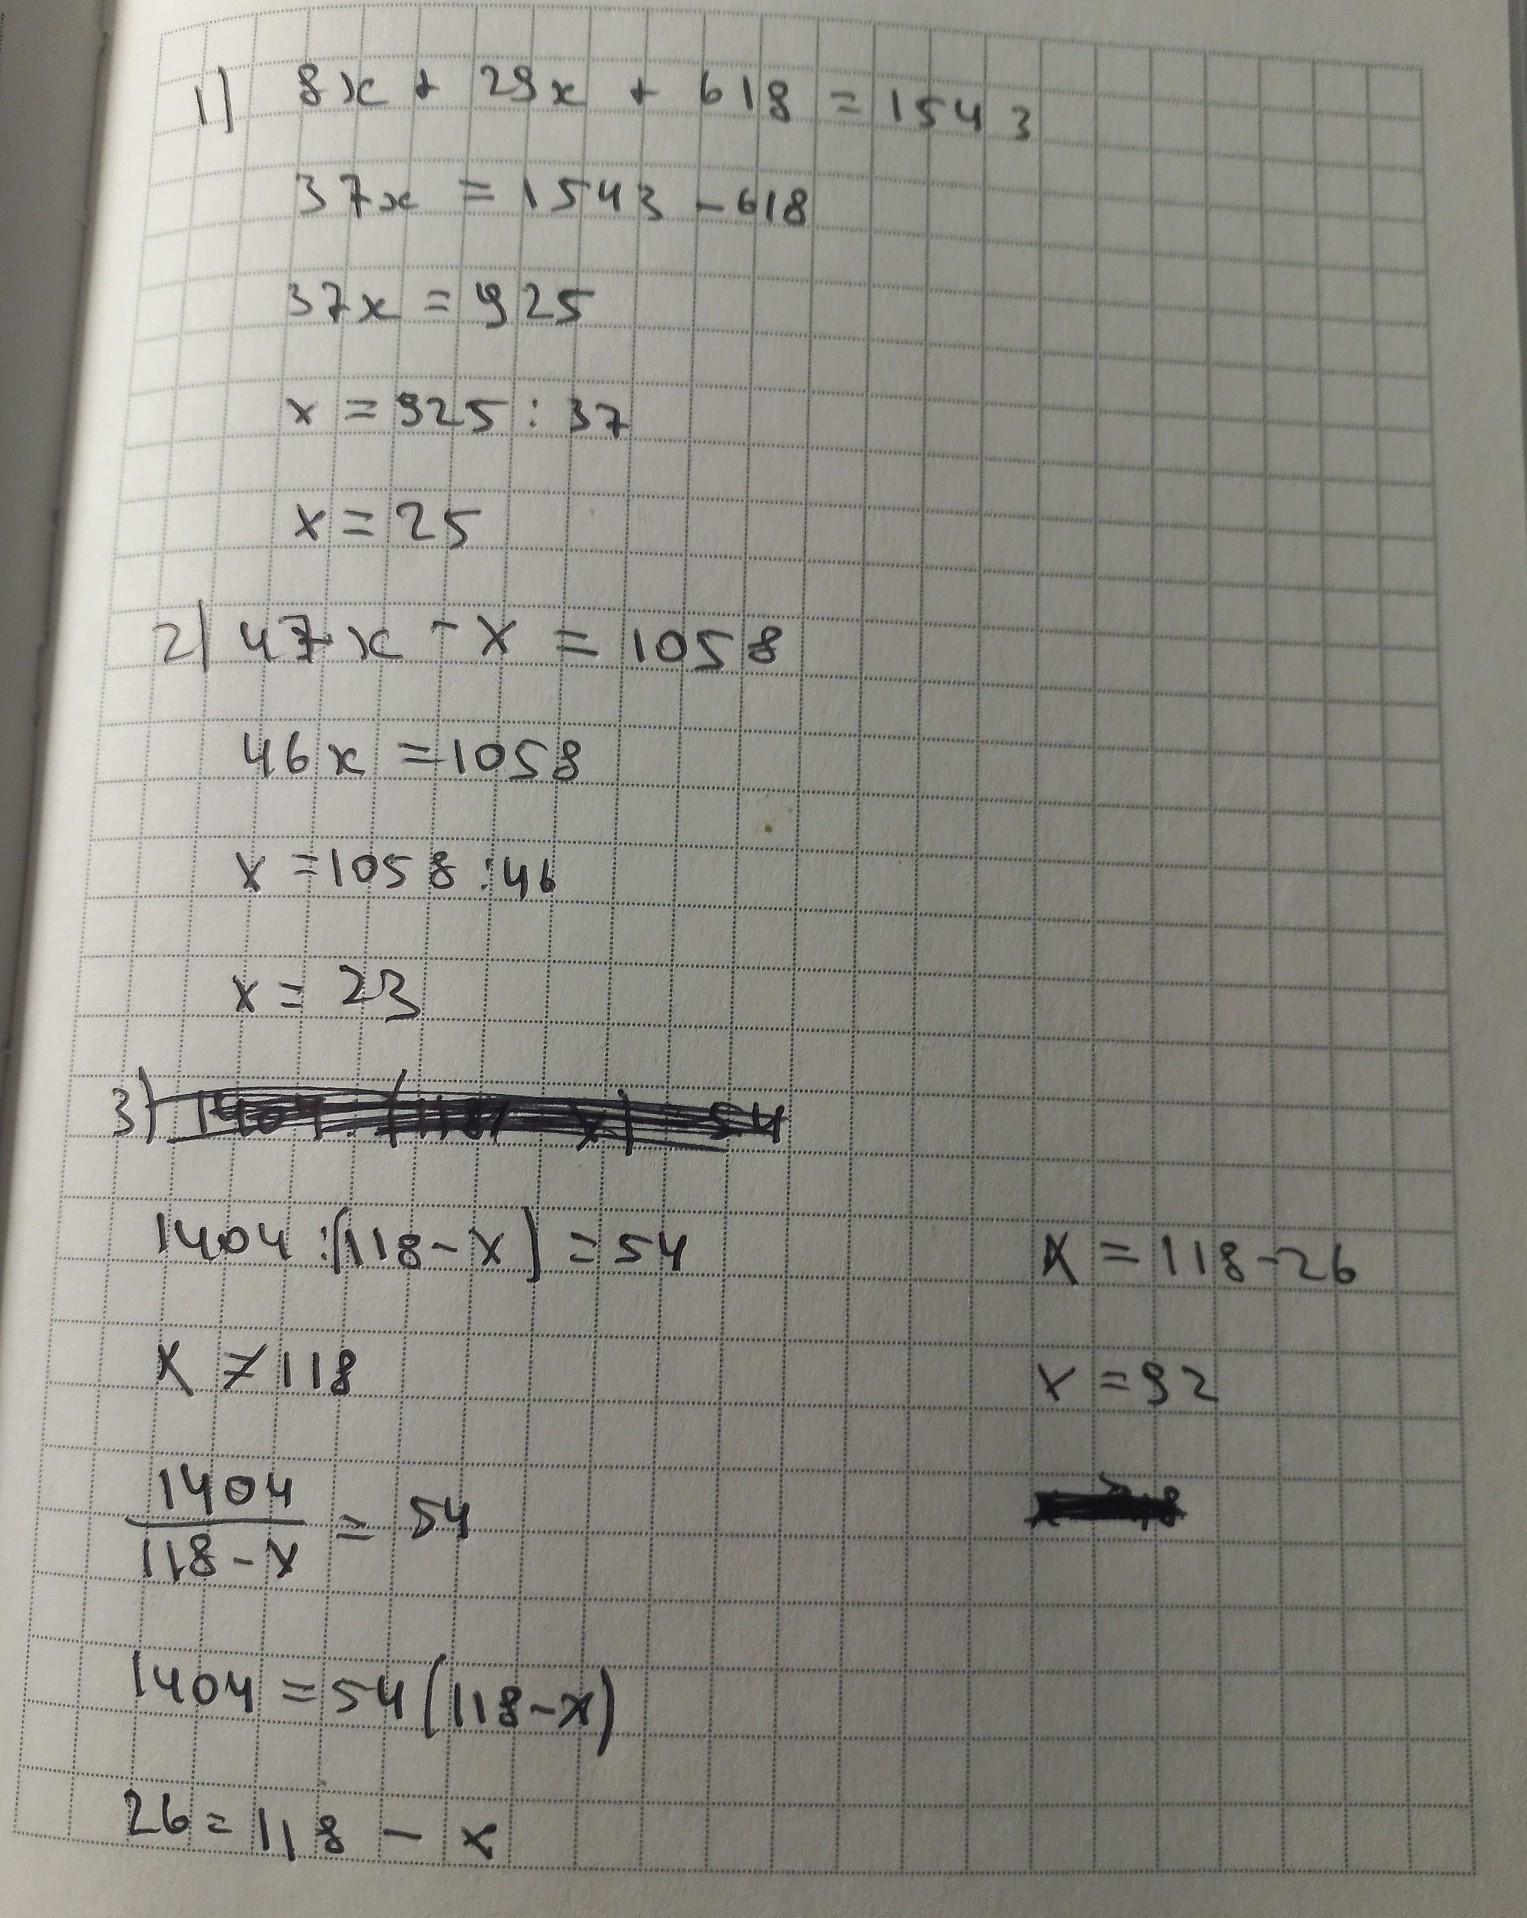 1) 8x + 29x + 618 = 1543
37x = 1543 - 618
37x = 925
x = 925 : 37
x = 25
2) 47x - x = 1058
46x = 1058
x = 1058 : 46
x = 23
3)
1404 : (118 - x) = 54
x ≠ 118
1404
118 - x
= 54
1404 = 54 (118 - x)
26 = 118 - x
x = 118 - 26
x = 92